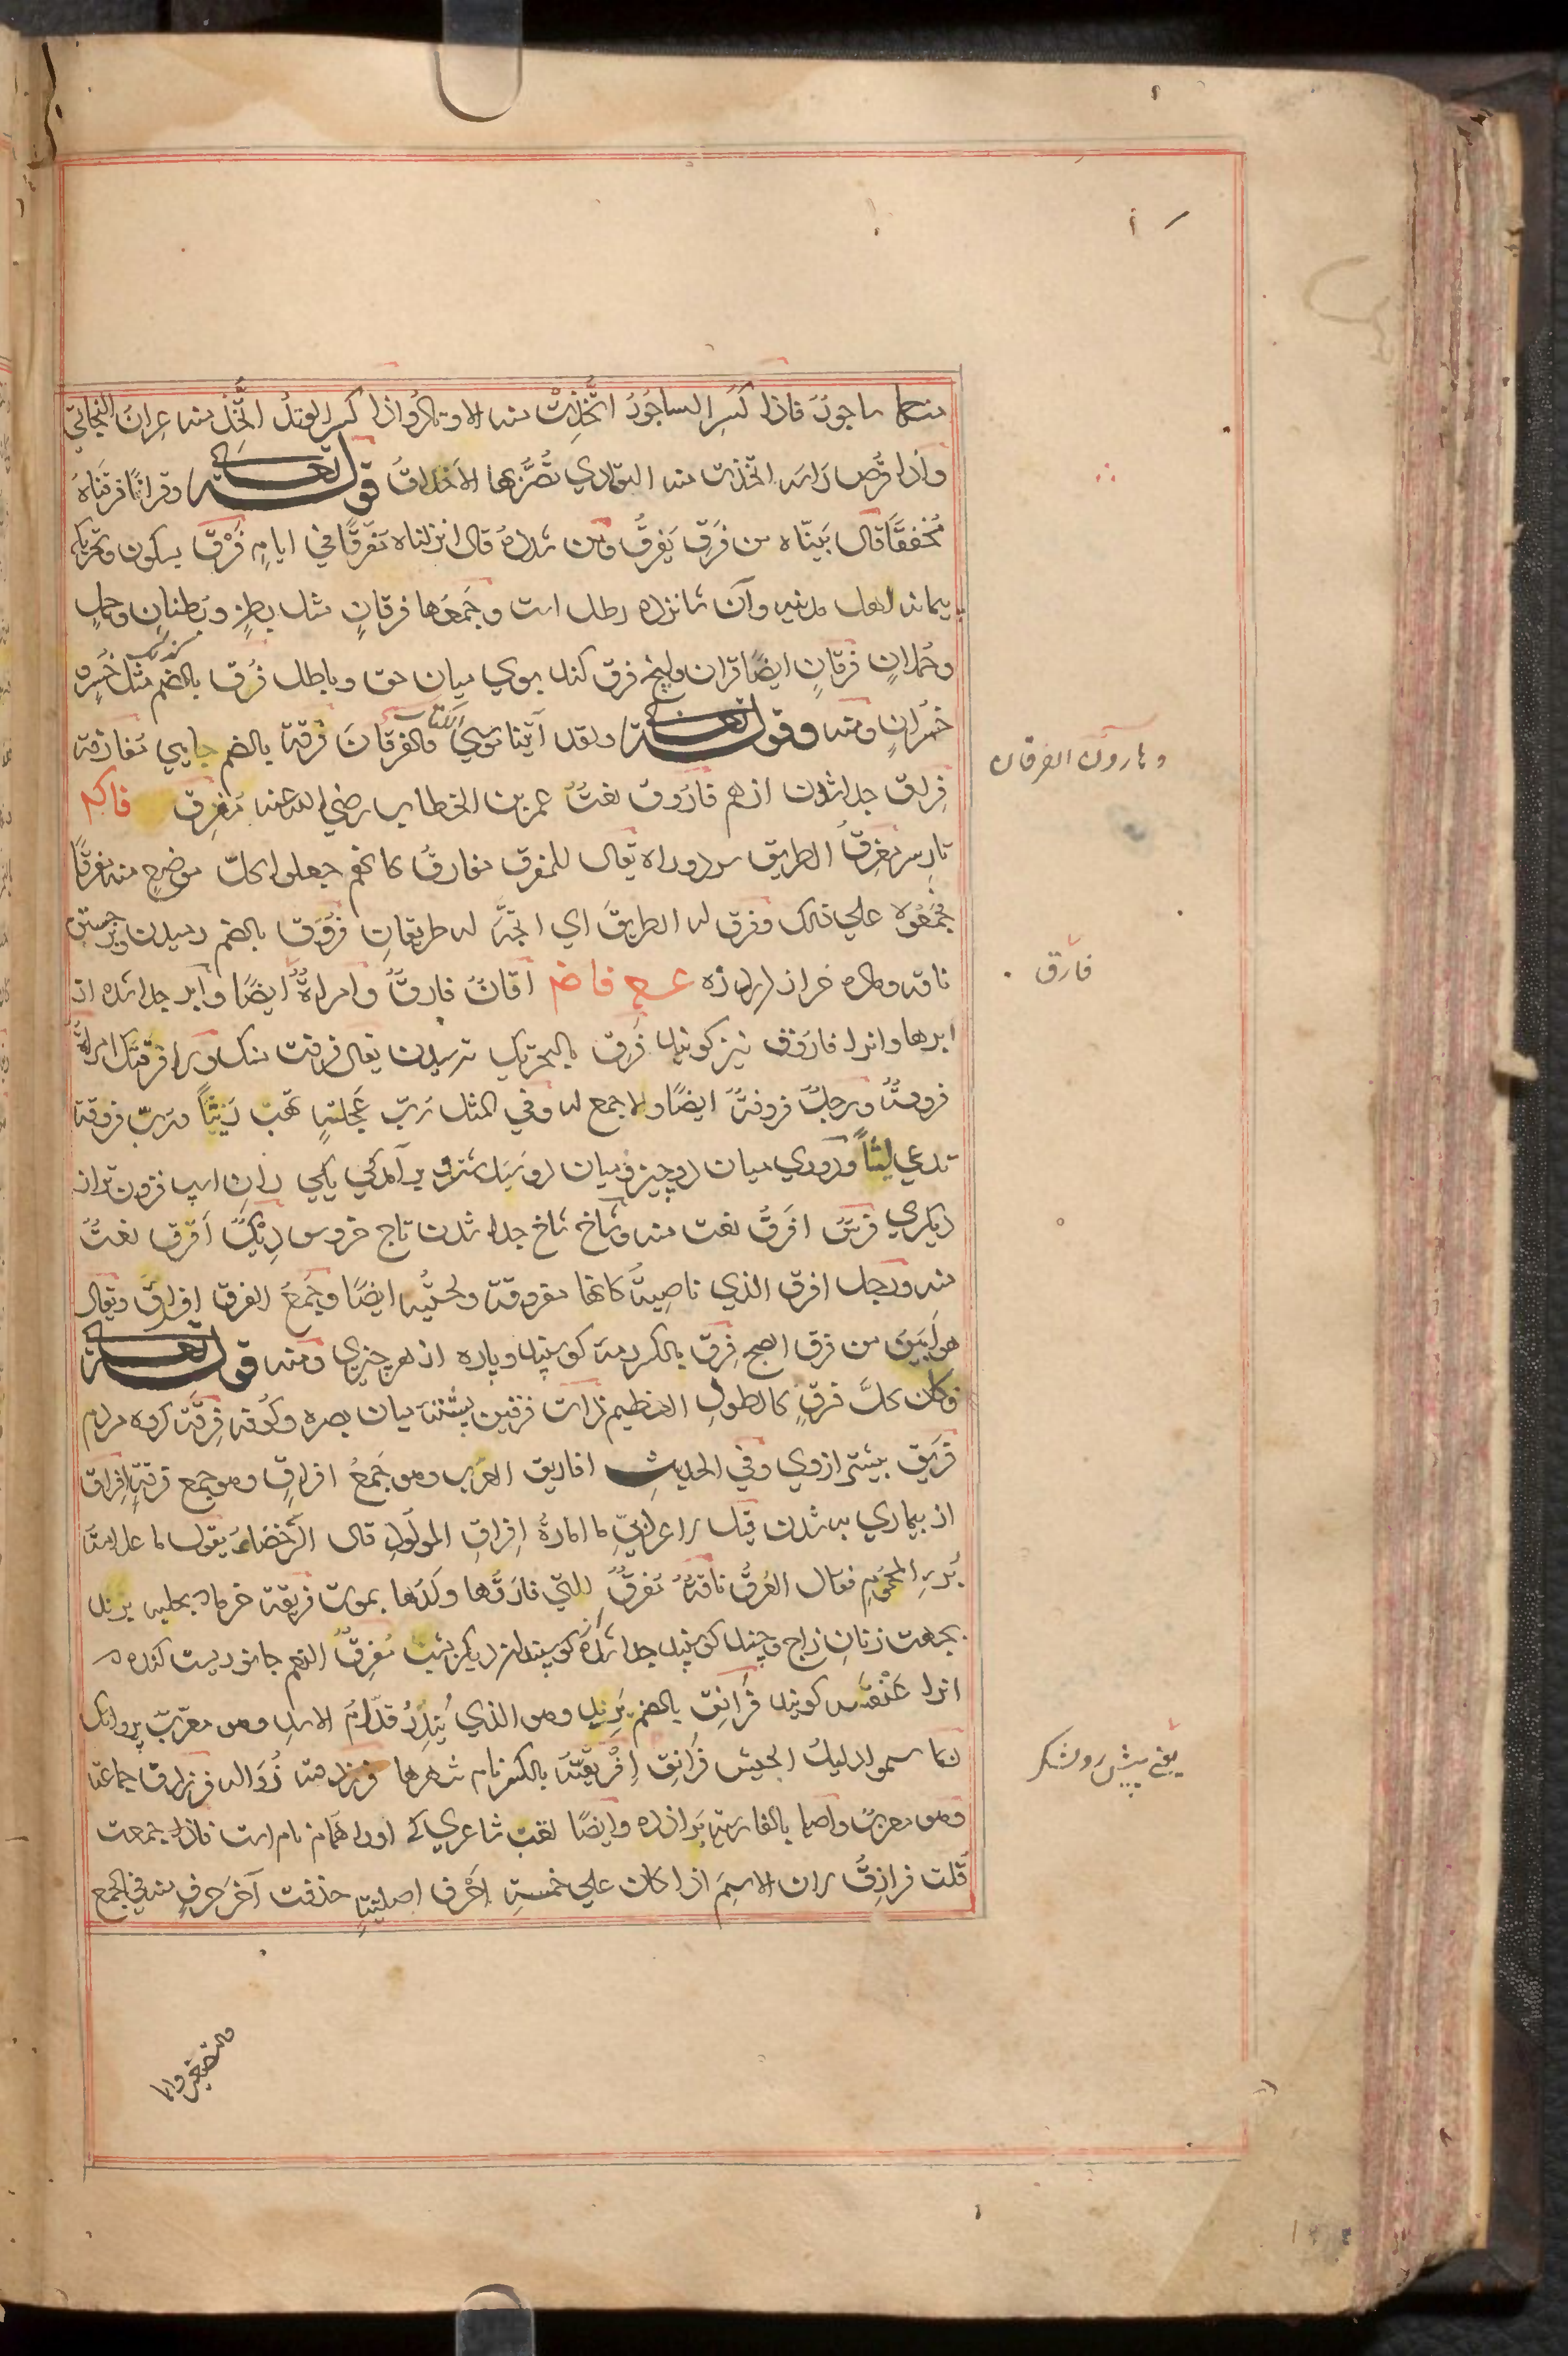 منهما ساجورٌ فاذا كُسِرَ الساجُورُ اتُّخِذَتْ منه الاوتادُ واذا كُسِرَ الوتدُ اتُّخِذَ منه عِرانُ البخاتي
واذا فُرِّص رأسه اتخذت منه التوادي تُصَرُّ بها الاخلافُ قوله تعالى وقرانًا فرقناهُ
مُخففًا قال بَيّنّاه من فَرَقَ يَفرُقُ ومن شدّدهُ قال انزلناه مُفرّقًا في ايامٍ فَرْق بسكون وتحريك
پیمانه اهل مدینه وآن شانزده رطل است وجَمعُها فُرقانٍ مثل بطنٍ وبُطنانٍ وحملٍ
وحُملانٍ فرقانٍ ايضًا قران وانچه فرق کند بوی میان حق وباطل فُرق بالضم مثله خُسْرٍ
خُسْرانٍ ومنه وقوله تعالى ولقد آتينا موسي الكتاب والفرقانَ فُرقة بالضم جدایی مُفارَقة
فِراق جدا شدن از هم فاروق لغتُ عمر بن الخطاب رضي الله عنه مَفرِق فاكم
تارسر مَفرِقُ الطريق سر دو راه يقال للمفرق مفارقُ كانهم جعلوا كلّ موضعٍ منه مفرقًا
جُمَعُوه علي ذلك وفرق له الطريقُ اي اتجه له طريقانِ فُرُوق بالضم رمیدن وبرجستن
ناقه وماده خر از درد زه ع ح فاض اتانٌ فارقٌ وامراةٌ ايضًا وابر جدا شده از
ابرها وانرا فارُوق نیز کویند فَرَق بالتحريك ترسیدن يقال فرقت منك ولا فرقتك امراةٌ
فروقةٌ ورجلٌ فروقةٌ ايضًا ولا جمع له وفي المثل رُبّ عَجَلةٍ تَهَبُ رَيثًا ورُبّ فروقة
تدعي ليثًا ودوری میان دو چیز ومیان دو سنبل شتر وبرآمدکی یکی ران اسپ فزون تر از
دیکری فرسٌ افرَقُ لغت منه وشاخ شاخ جدا شدن تاج خروس دِيْكٌ اَفرق لغتٌ
منه ورجل افرق الذي ناصيتهُ كانها مفروقة ولحيتُه ايضًا وجَمعُ الفرق افراقٌ ويقال
هو اَبَيَنُ من فرق الصبح فِرق بالكسر رمه کوسپند وپاره از هر چیزی ومنه قوله تعالى
فكان كلُّ فِرقٍ كالطودِ العظيم ذات فرقين پشته میان بصره وکوفه فِرقة کروه مردم
فَريق بیشتر از وی وفي الحديثِ افاريق العرب وهو جَمعُ افراقٍ وهو جمع فرقةٍ افراق
از بیماری به شدن قيل لاعرابيٍّ ما امارةُ افراقِ المورودِ قال الرُّخَضاءُ يقول ما علامةُ
بُرءِ المحمومِ فقال العَرَقُ ناقةٌ مُفرِقٌ للتي فارَقَها ولَدُها بموت فَريقة خرما وحلبه بزند
بجهت زنان زاج وچند کوسپند جدا شده کوسپند از دیکر بشب مُفرِقٌ النعم جانوریست كنده
انرا عنقه کویند فُرانِق بالضم بَريد وهو الذي يُنذِرُ قدّامَ الاسد وهو معرّب پروانک
ربما سموا دليلَ الجيش فُرانِق اِفْريقيةُ بالكسر نام شهرها فرزدقة نُوالة فرزدق جماعة
وهو معربٌ واصله بالفارسية پَرازده وايضًا لقب شاعری که اورا همام نام است فاذا جمعت
قلت فرازِقُ لان الاسمَ اذا كان علي خمسةِ اَحْرفٍ اصليةٍ حذفت آخرَ حرفٍ منه في الجمع
والتصغير وانما
وهارون الفرقان
فارق
يعني پیش رو لشکر